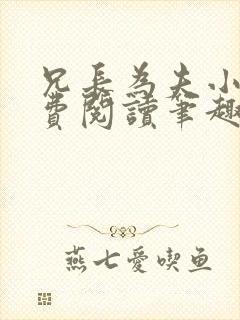 兄長為夫小
費閱讀筆趣
燕七愛喫鱼